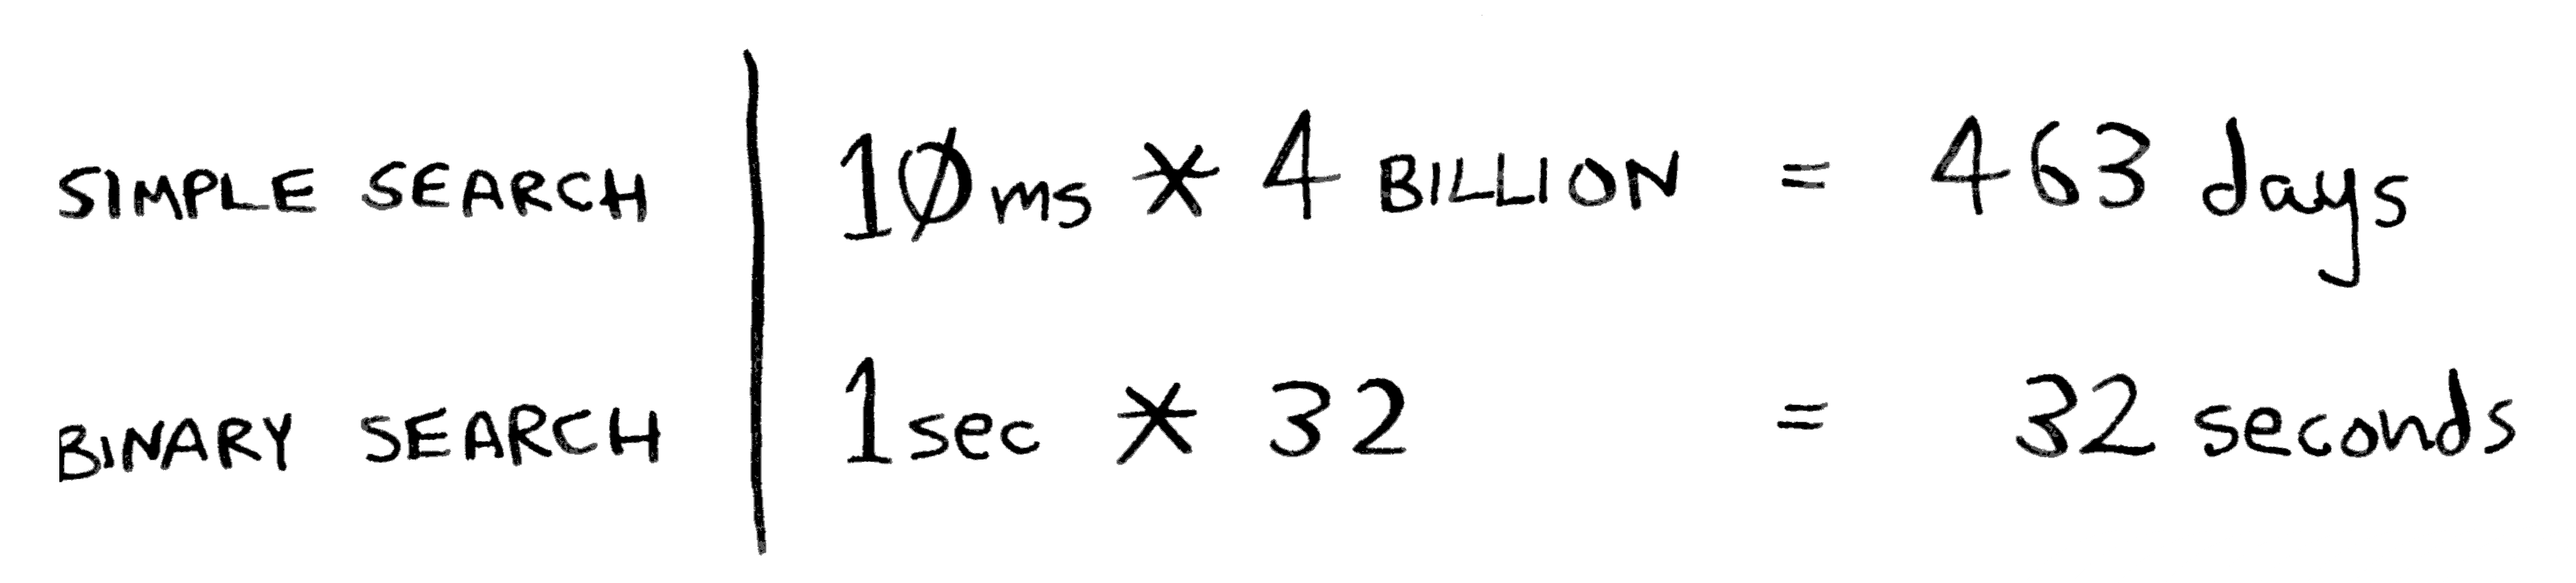 SIMPLE SEARCH | 10ms * 4 BILLION = 463 days
BINARY SEARCH | 1sec * 32 = 32 seconds